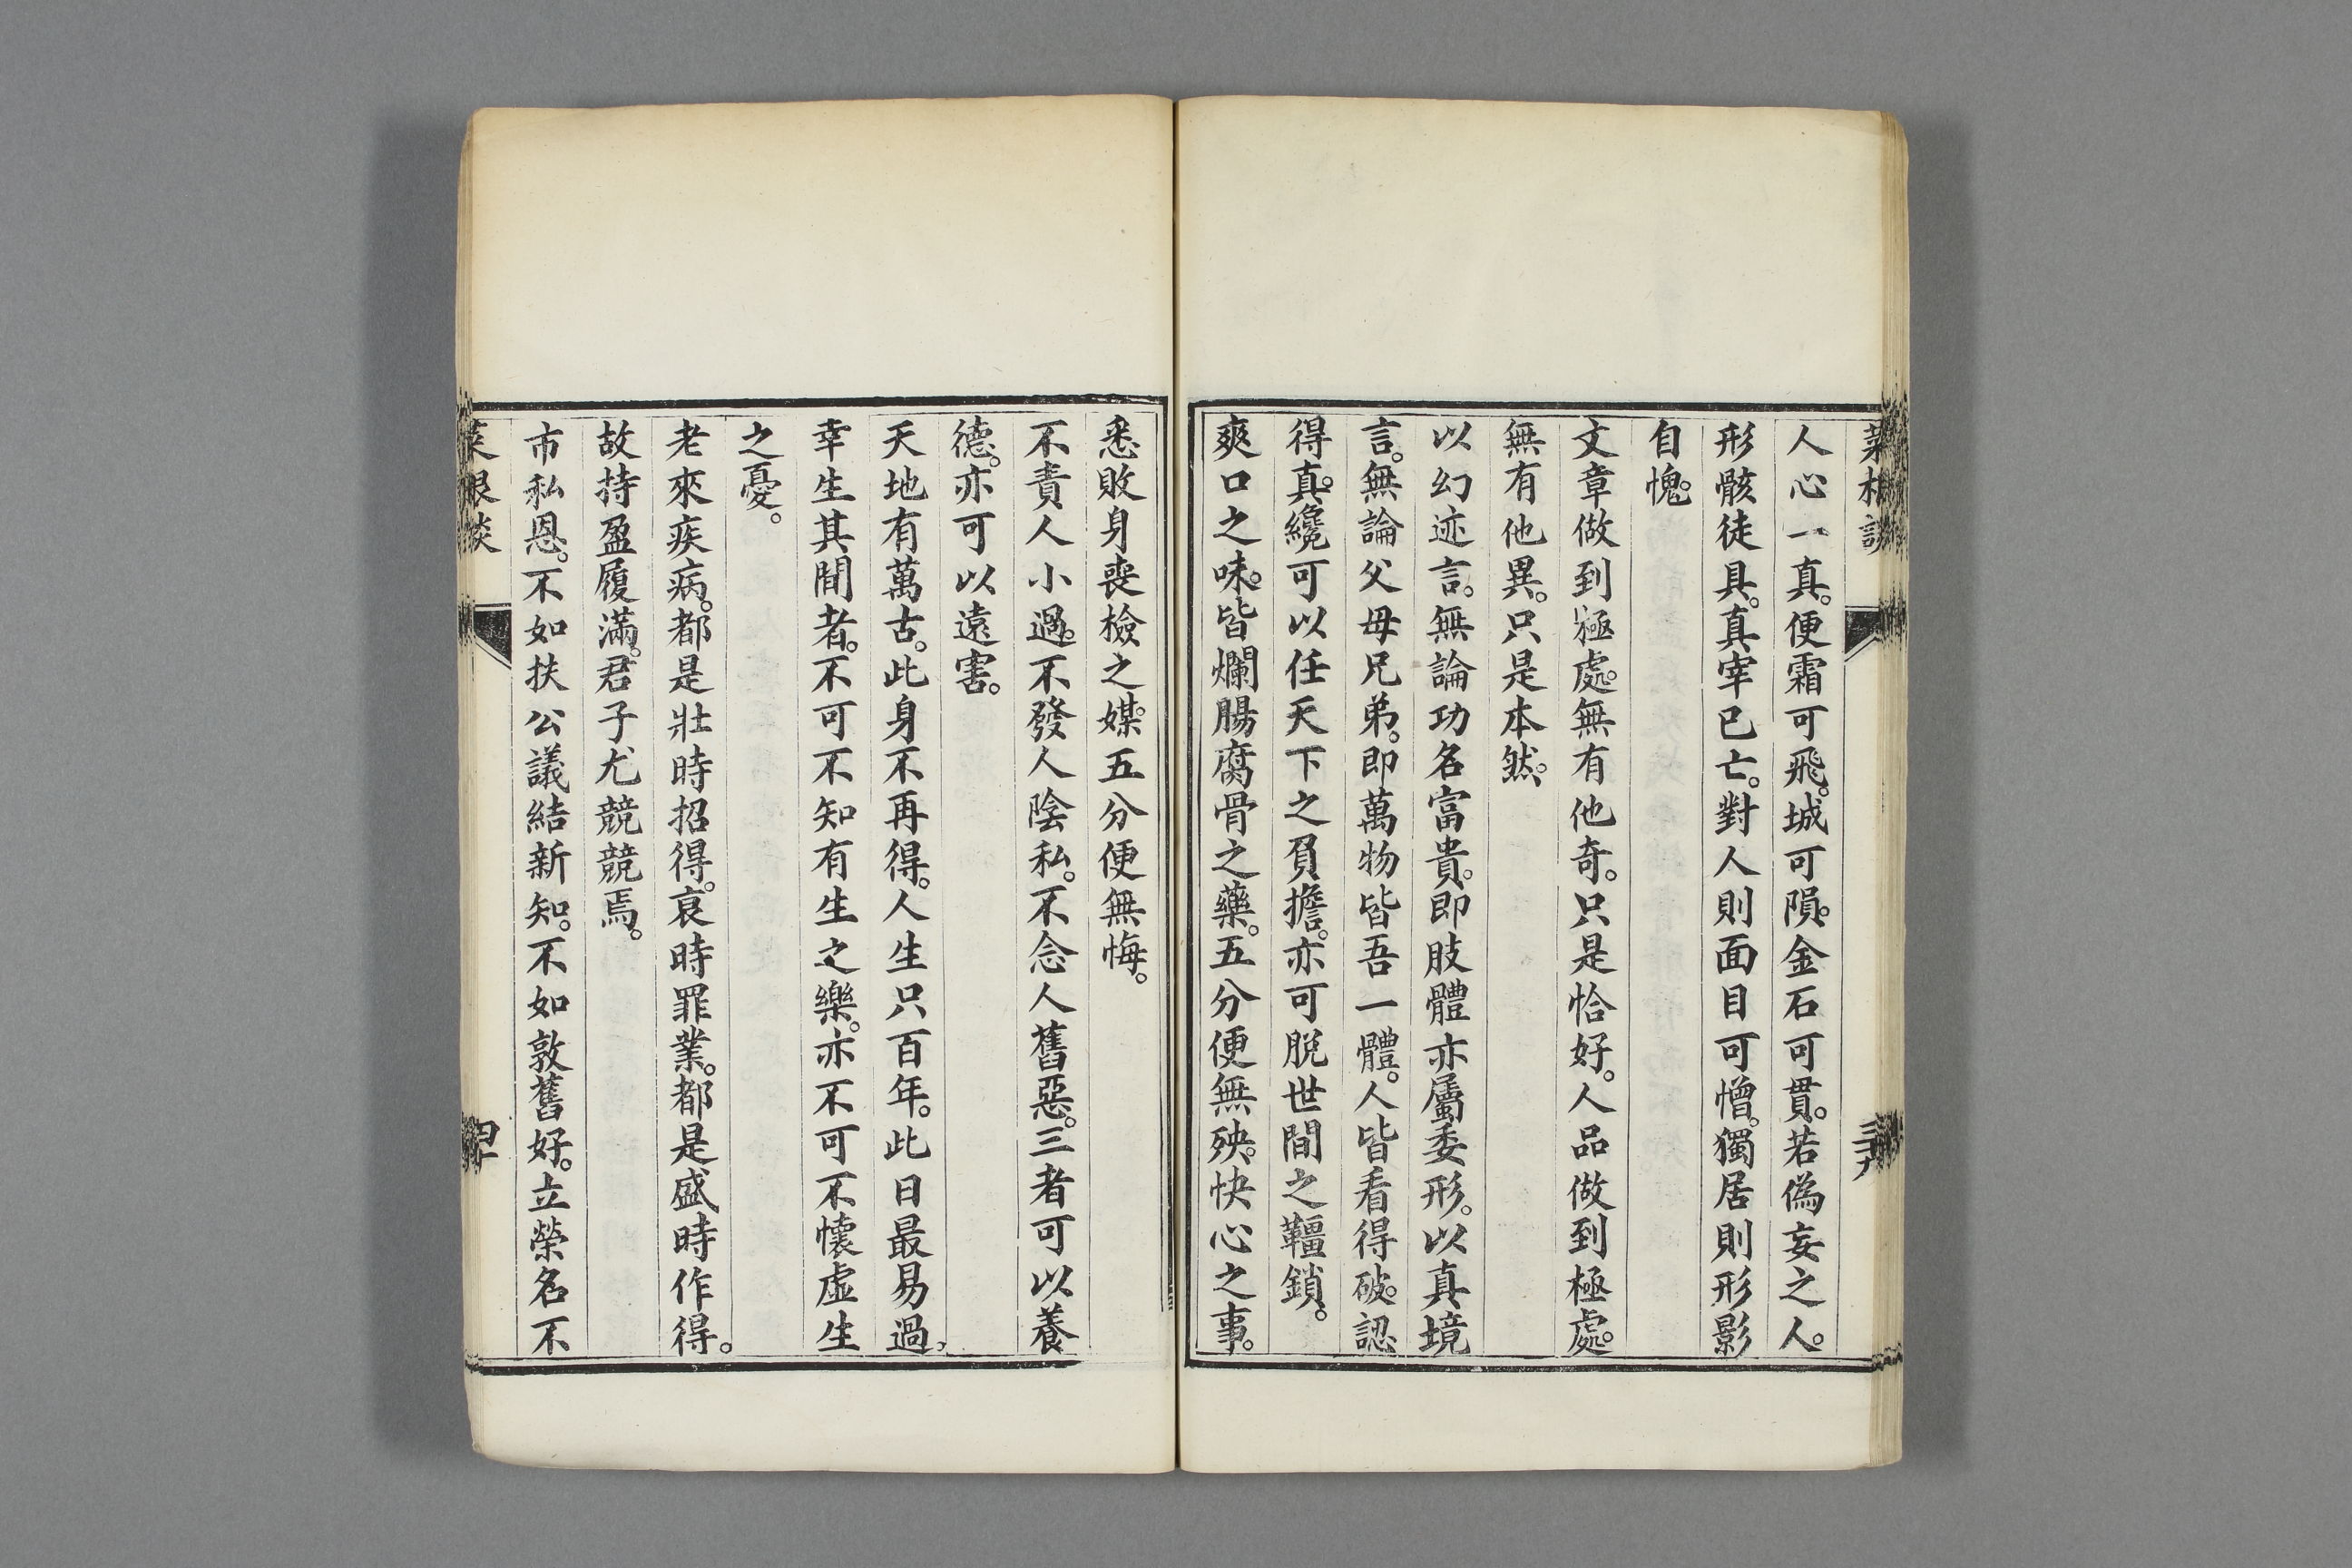 菜根談
三十九
人心一真。便霜可飛。城可隕。金石可貫。若偽妄之人。
形骸徒具。真宰已亡。對人則面目可憎。獨居則形影
自愧。
文章做到極處。無有他奇。只是恰好。人品做到極處。
無有他異。只是本然。
以幻迹言。無論功名富貴。即肢體亦屬委形。以真境
言。無論父母兄弟。即萬物皆吾一體。人皆看得破。認
得真。纔可以任天下之負擔。亦可脱世間之韁鎖。
爽口之味。皆爛腸腐骨之藥。五分便無殃。快心之事。
悉敗身喪檢之媒。五分便無悔。
不責人小過。不發人陰私。不念人舊惡。三者可以養
德。亦可以遠害。
天地有萬古。此身不再得。人生只百年。此日最易過。
幸生其間者。不可不知有生之樂。亦不可不懷虛生
之憂。
老來疾病。都是壯時招得。衰時罪業。都是盛時作得。
故持盈履滿。君子尤競競焉。
市私恩。不如扶公議。結新知。不如敦舊好。立榮名。不
菜根談
四十